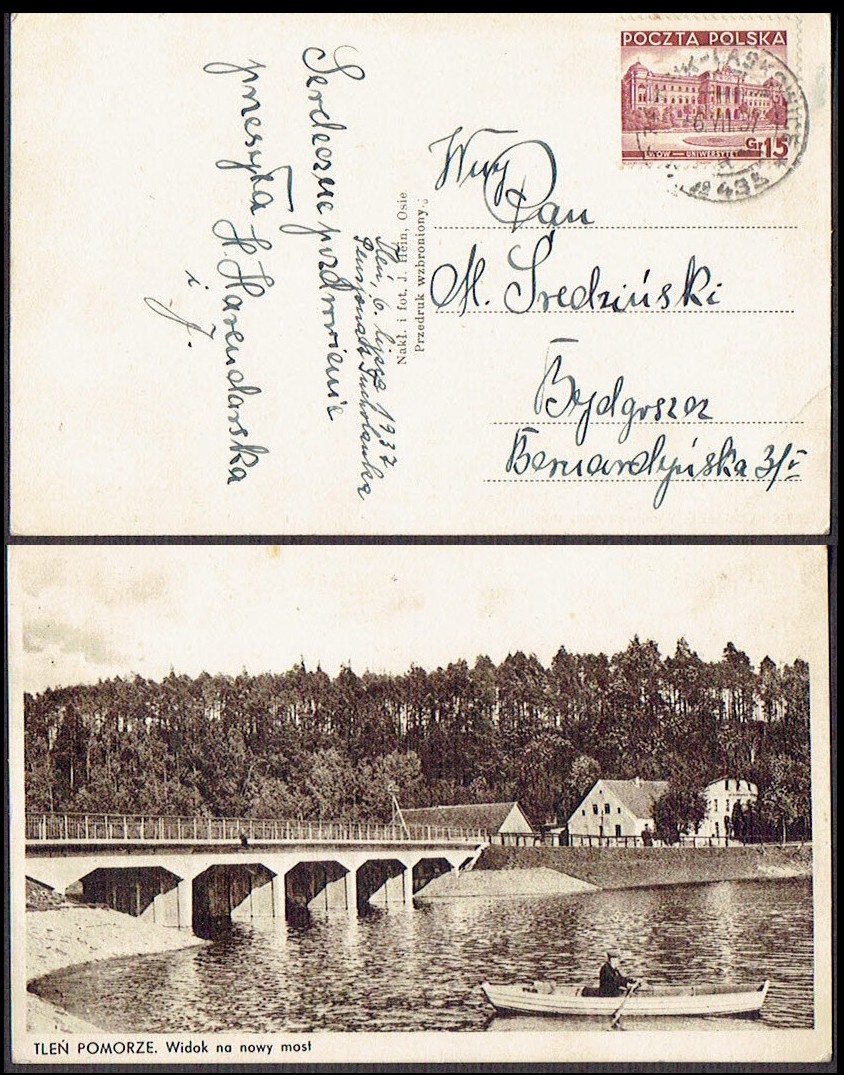 POCZTA POLSKA
LWÓW — UNIWERSYTET
Gr 15
6 VII 37
Serdeczne pozdrowienie
przesyła H. Harendarska
i J.
Tleń, 6. lipca 1937
Pensjonat Sucholanka
Nakł. i fot. J. Hein, Osie
Przedruk wzbroniony.
Wny
Pan
M. Średziński
Bydgoszcz
Bernardyńska 3/I
TLEŃ POMORZE. Widok na nowy most